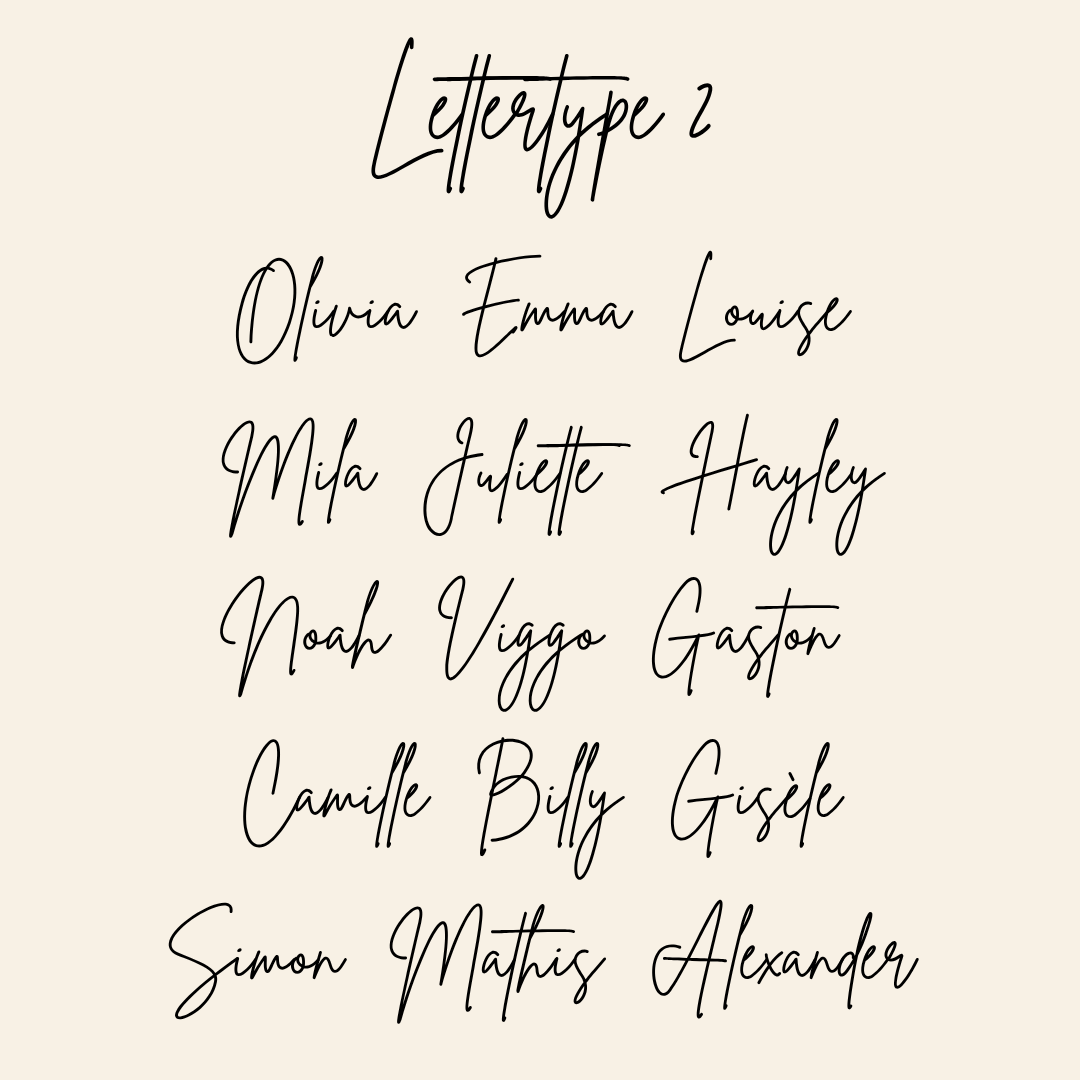 Lettertype 2
Olivia Emma Louise
Mila Juliette Hayley
Noah Viggo Gaston
Camille Billy Gisèle
Simon Mathis Alexander